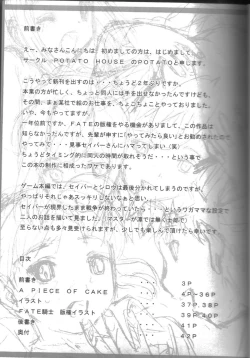 前書き
えー、みなさんこんにちは、初めましての方は、はじめまして、
サークル POTATO HOUSE のPOTATOと申します。
こうやって新刊を出すのは・・・ちょうど2年ぶりですか。
本業の方が忙しく、ちょっと同人には手を出せなかったんですけども、
その間、まぁ某社で絵のお仕事を、ちょこちょことやっておりました。
いや、今もやってますが。
一年位前ですか、FATEの版権をやる機会がありまして、この作品は
知らなかったんですが、先輩が申すに(やってみたら良い)とお勧めされたので
やってみて・・・見事セイバーさんにハマってしまい(笑)
ちょうどタイミング的に同人の時間が取れそうだ・・・という事で
この本の制作に相成ったワケであります。
ゲーム本編では、セイバーとシロウは最後分かれてしまうのですが、
やっぱそれじゃあスッキリしないなぁと思い、
セイバーが現界したまま戦争が終わっていたら・・・というワガママな設定で
二人のお話を描いて見ました。(マスターが凛では無く士郎で)
至らない点も多々見受けられますが、少しでも楽しんで頂けたら幸いです。
目次
前書き ・・・ 3P
A PIECE OF CAKE ・・・ 4P-36P
イラスト ・・・ 37P,38P
FATE騎士 版権イラスト ・・・ 39P,40P
後書き ・・・ 41P
奥付 ・・・ 42P